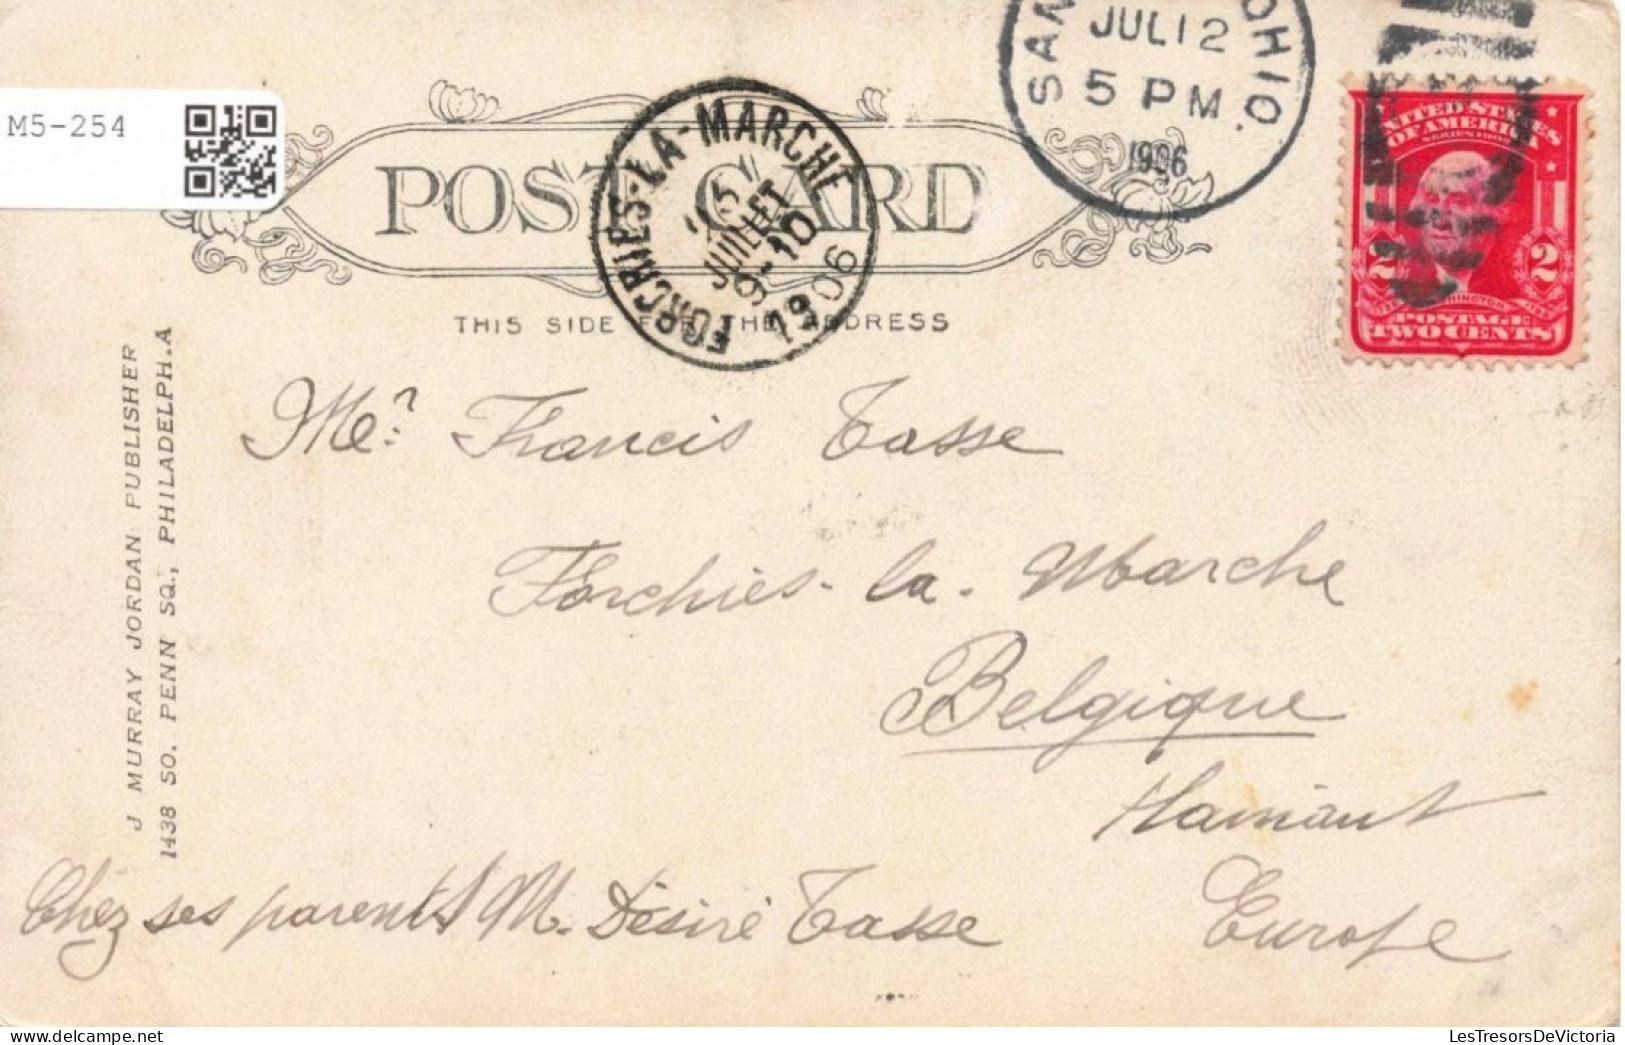 M5-254
JUL 12
5 PM
OHIO.
1906
POST CARD
FORCHIES-LA-MARCHE
15
JUILLET
9-10
1906
UNITED STATES
OF AMERICA
2 2
POSTAGE
TWO CENTS
THIS SIDE FOR THE ADDRESS
J MURRAY JORDAN PUBLISHER
1438 SO. PENN SQ., PHILADELPH.A
Mr Francis Tasse
Forchies-la-Marche
Belgique
Hainaut
Europe
Chez ses parents M. Désiré Tasse
LesTresorsDeVictoria